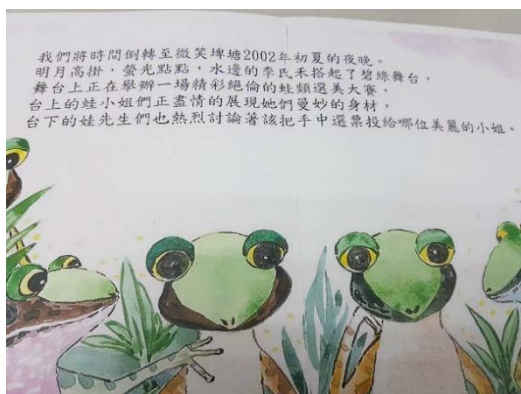 我們將時間倒轉至微笑埤塘2002年初夏的夜晚。
明月高掛，螢光點點，水邊的李氏禾搭起了碧綠舞台，
舞台上正在舉辦一場精彩絕倫的蛙類選美大賽，
台上的蛙小姐們正盡情的展現她們曼妙的身材，
台下的蛙先生們也熱烈討論著該把手中選票投給哪位美麗的小姐。